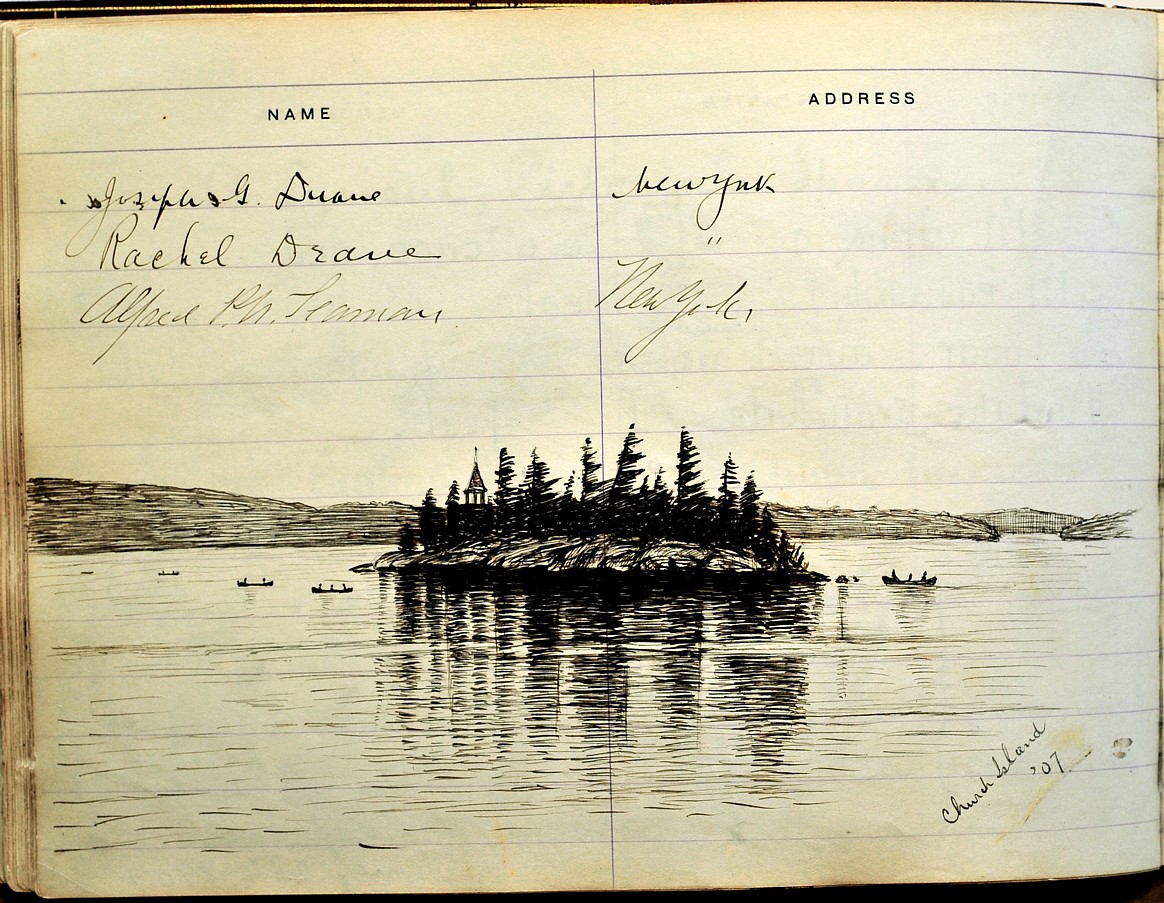 NAME ADDRESS
Joseph G. Duane New York
Rachel Deane "
Alfred Seaman New York
Church Island
'07